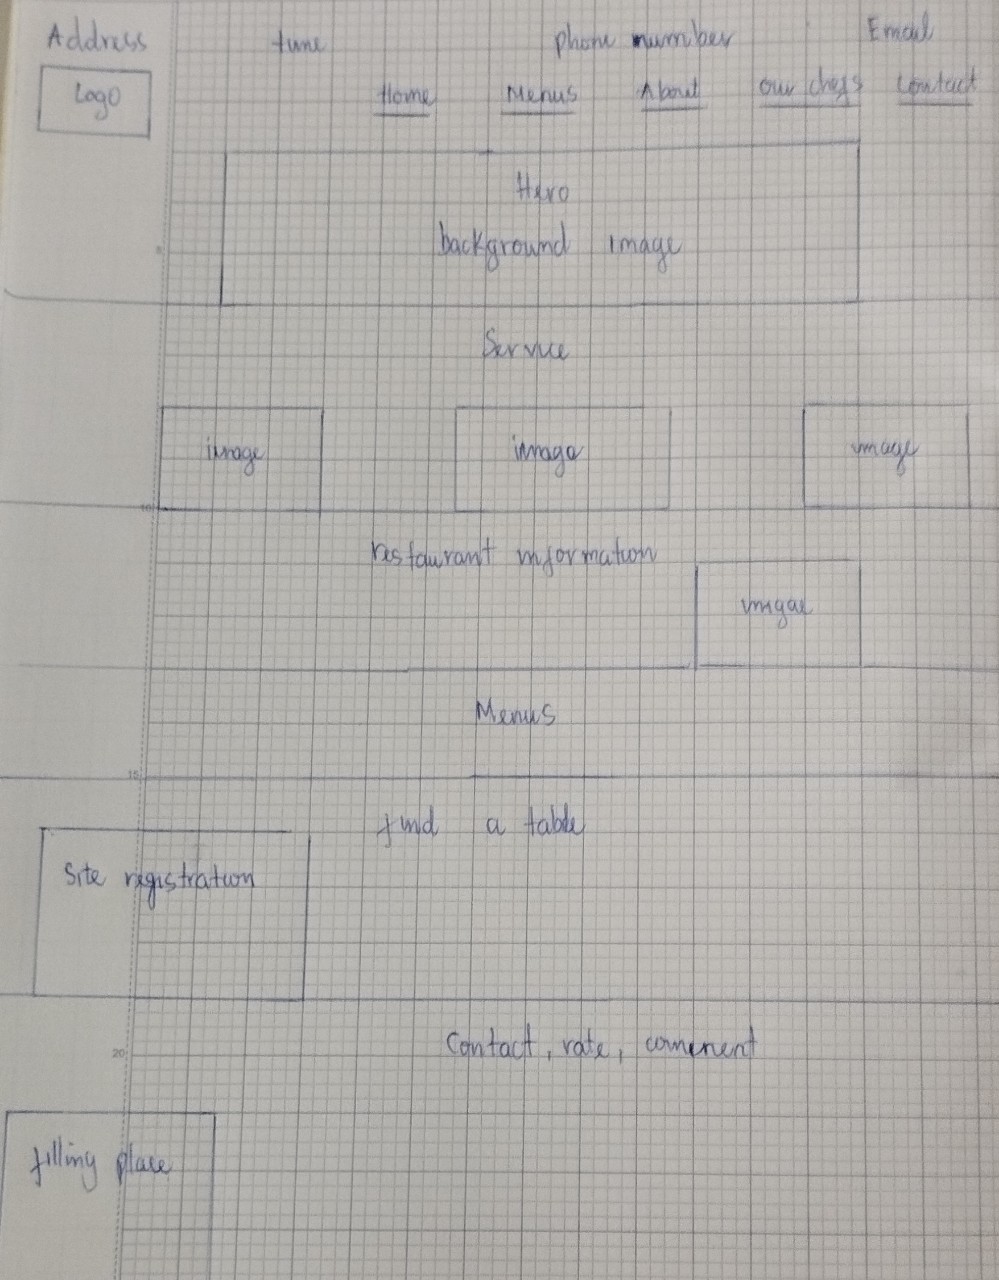 Address time phone number Email
Logo Home Menus About our chefs contact
Hero
background image
Service
image image image
restaurant information
imgae
Menus
find a table
Site registration
Contact, rate, comment
filling place
10
15
20